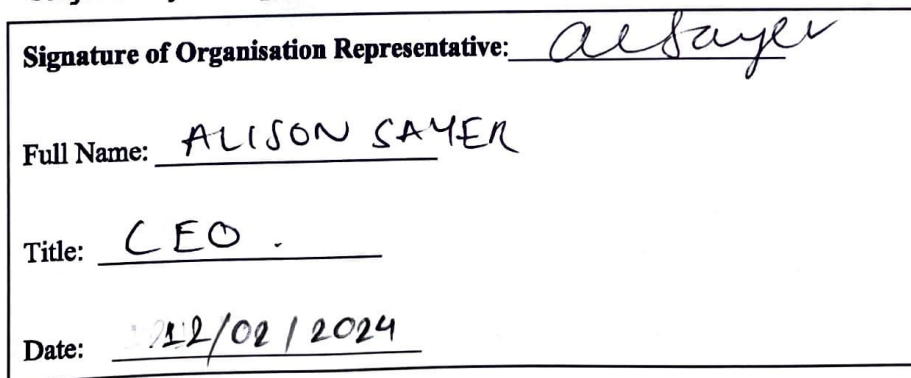 Signature of Organisation Representative: alsayer
Full Name: ALISON SAYER
Title: CEO .
Date: 12/02/2024